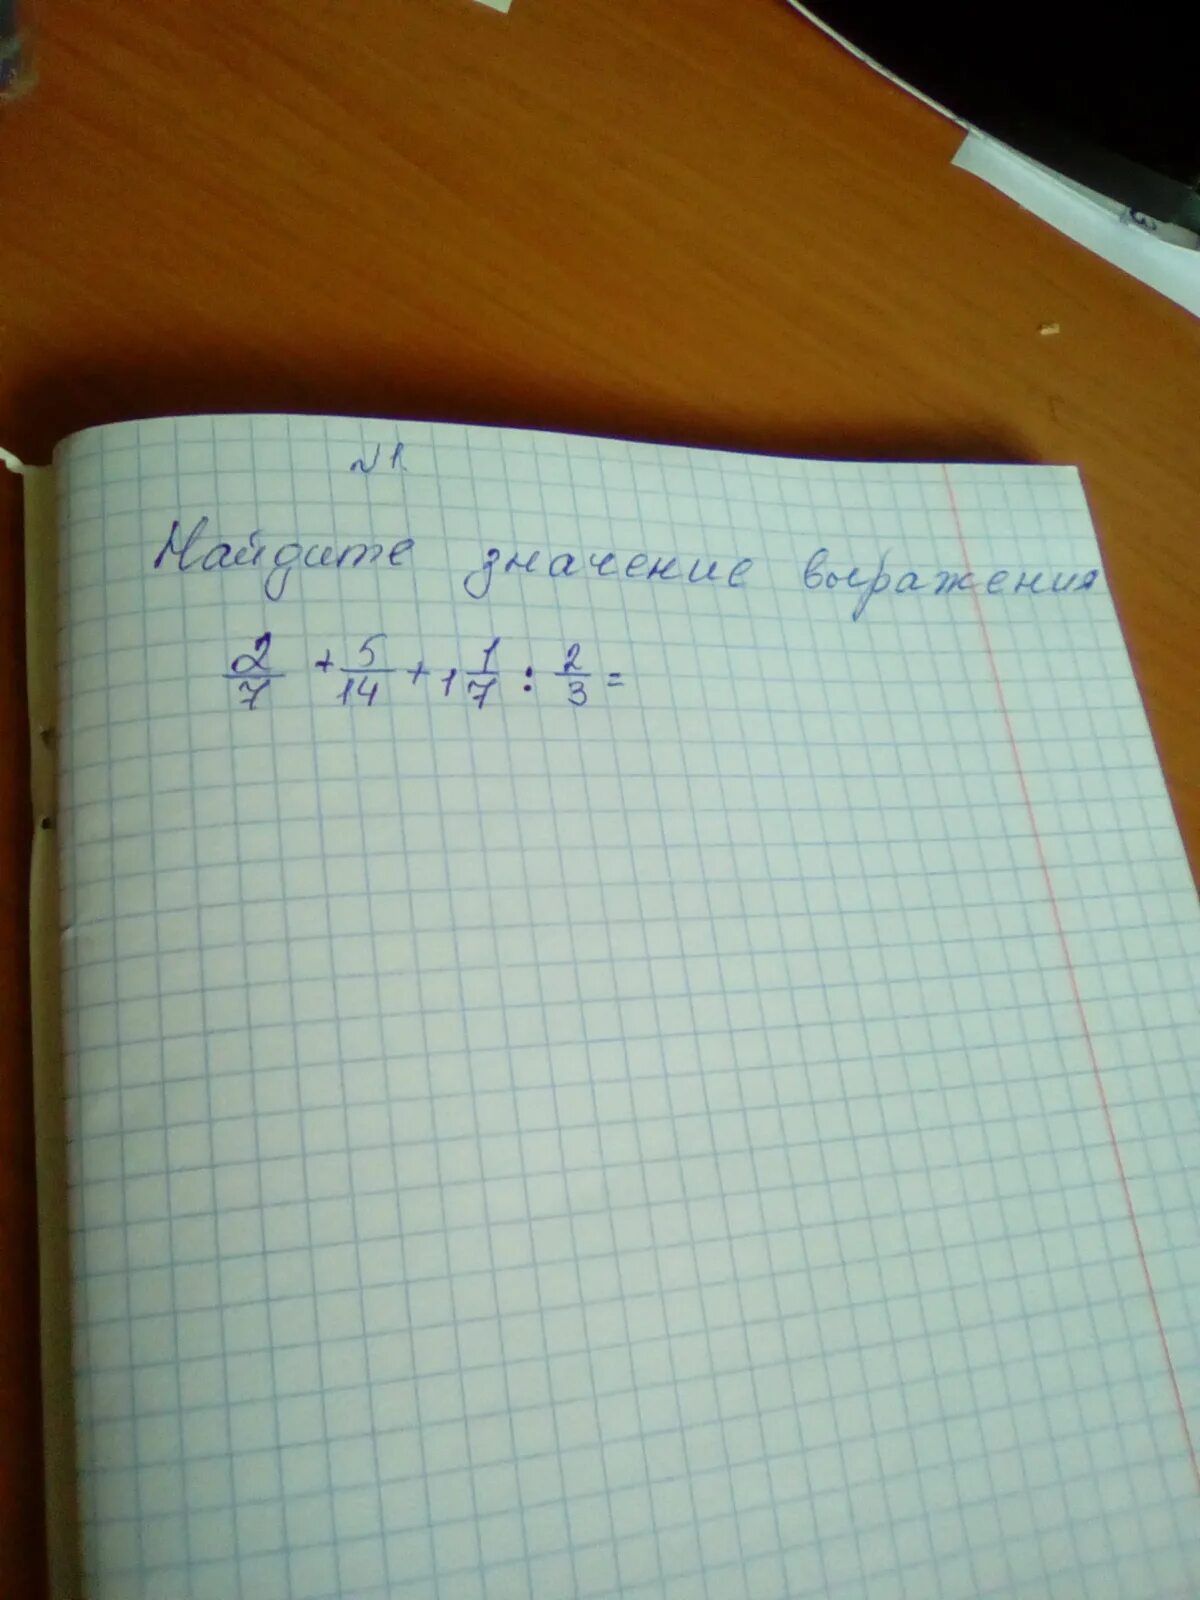 №1.
Найдите значение выражения
2/7 + 5/14 + 1 1/7 : 2/3 =